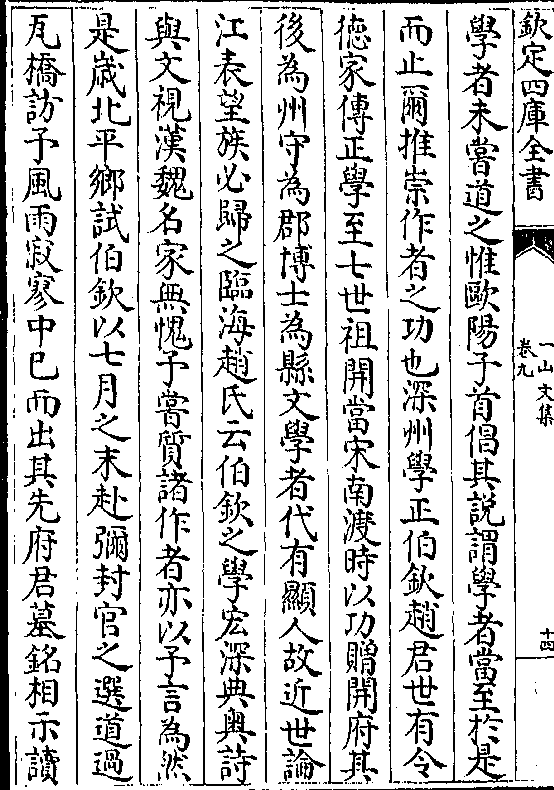 欽定四庫全書
一山文集
卷九
十四
學者未嘗道之惟歐陽子首倡其説謂學者當至於是
而止爾推崇作者之功也深州學正伯欽趙君世有令
徳家傳正學至七世祖開當宋南渡時以功贈開府其
後為州守為郡博士為縣文學者代有顯人故近世論
江表望族必歸之臨海趙氏云伯欽之學宏深典奥詩
與文視漢魏名家無愧予嘗質諸作者亦以予言為然
是嵗北平鄉試伯欽以七月之末赴彌封官之選道過
瓦橋訪予風雨寂寥中已而出其先府君墓銘相示讀